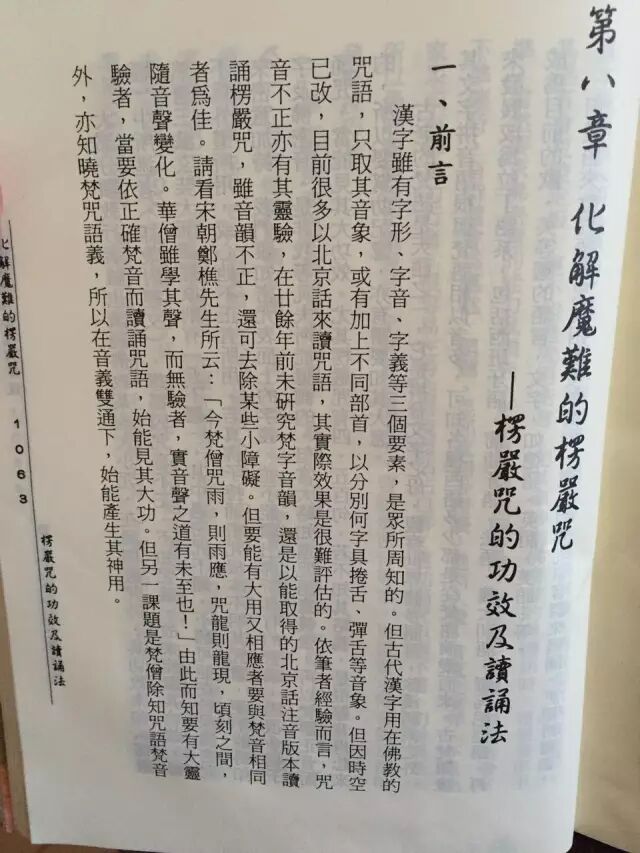 第八章 化解魔難的楞嚴咒
——楞嚴咒的功效及讀誦法
一、前言
漢字雖有字形、字音、字義等三個要素，是眾所周知的。但古代漢字用在佛教的
咒語，只取其音象，或有加上不同部首，以分別何字具捲舌、彈舌等音象。但因時空
已改，目前很多以北京話來讀咒語，其實際效果是很難評估的。依筆者經驗而言，咒
音不正亦有其靈驗，在廿餘年前未研究梵字音韻，還是以能取得的北京話注音版本讀
誦楞嚴咒，雖音韻不正，還可去除某些小障礙。但要能有大用又相應者要與梵音相同
者為佳。請看宋朝鄭樵先生所云：「今梵僧咒雨，則雨應，咒龍則龍現，頃刻之間，
隨音聲變化。華僧雖學其聲，而無驗者，實音聲之道有未至也！」由此而知要有大靈
驗者，當要依正確梵音而讀誦咒語，始能見其大功。但另一課題是梵僧除知咒語梵音
外，亦知曉梵咒語義，所以在音義雙通下，始能產生其神用。
化解魔難的楞嚴咒 1063 楞嚴咒的功效及讀誦法